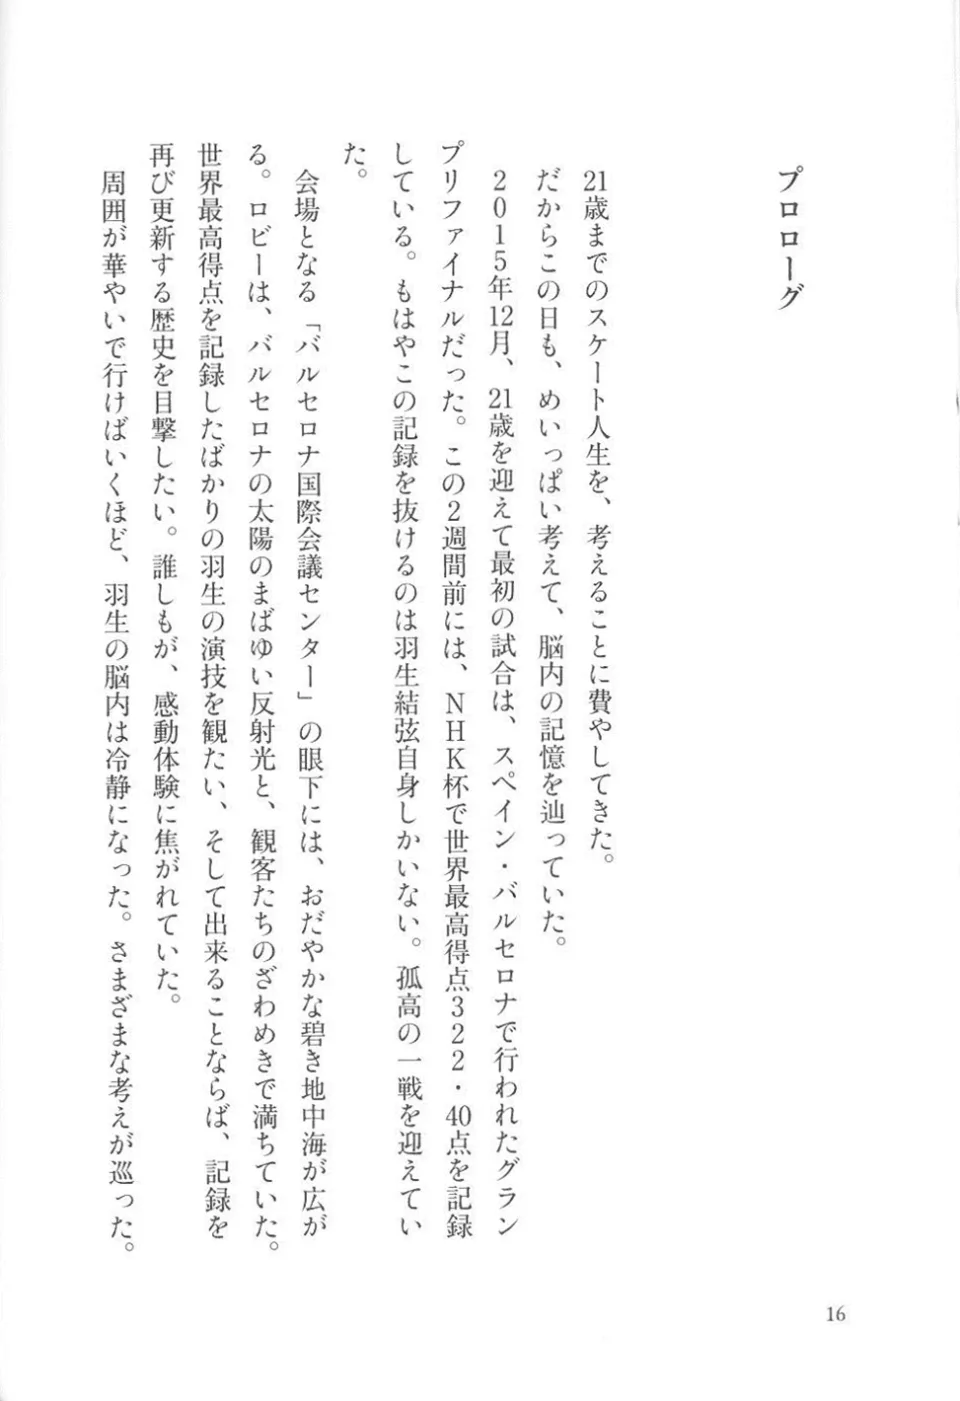 プロローグ
21歳までのスケート人生を、考えることに費やしてきた。
だからこの日も、めいっぱい考えて、脳内の記憶を辿っていた。
2015年12月、21歳を迎えて最初の試合は、スペイン・バルセロナで行われたグラン
プリファイナルだった。この2週間前には、NHK杯で世界最高得点322・40点を記録
している。もはやこの記録を抜けるのは羽生結弦自身しかいない。孤高の一戦を迎えてい
た。
会場となる「バルセロナ国際会議センター」の眼下には、おだやかな碧き地中海が広が
る。ロビーは、バルセロナの太陽のまばゆい反射光と、観客たちのざわめきで満ちていた。
世界最高得点を記録したばかりの羽生の演技を観たい、そして出来ることならば、記録を
再び更新する歴史を目撃したい。誰しもが、感動体験に焦がれていた。
周囲が華やいで行けばいくほど、羽生の脳内は冷静になった。さまざまな考えが巡った。
16